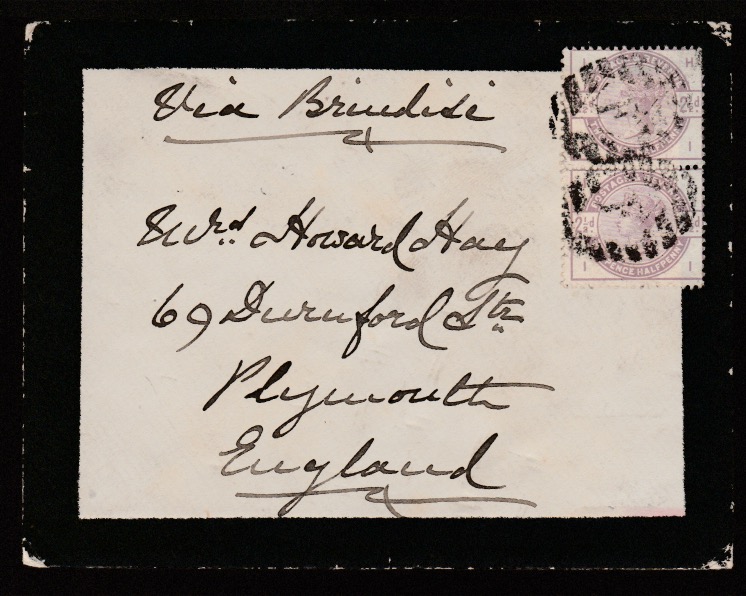 Via Brindisi
Mrs. Howard Hay
69 Durnford Str.
Plymouth
England
H
2½d
I
I
2½d
PENCE HALFPENNY
I
I